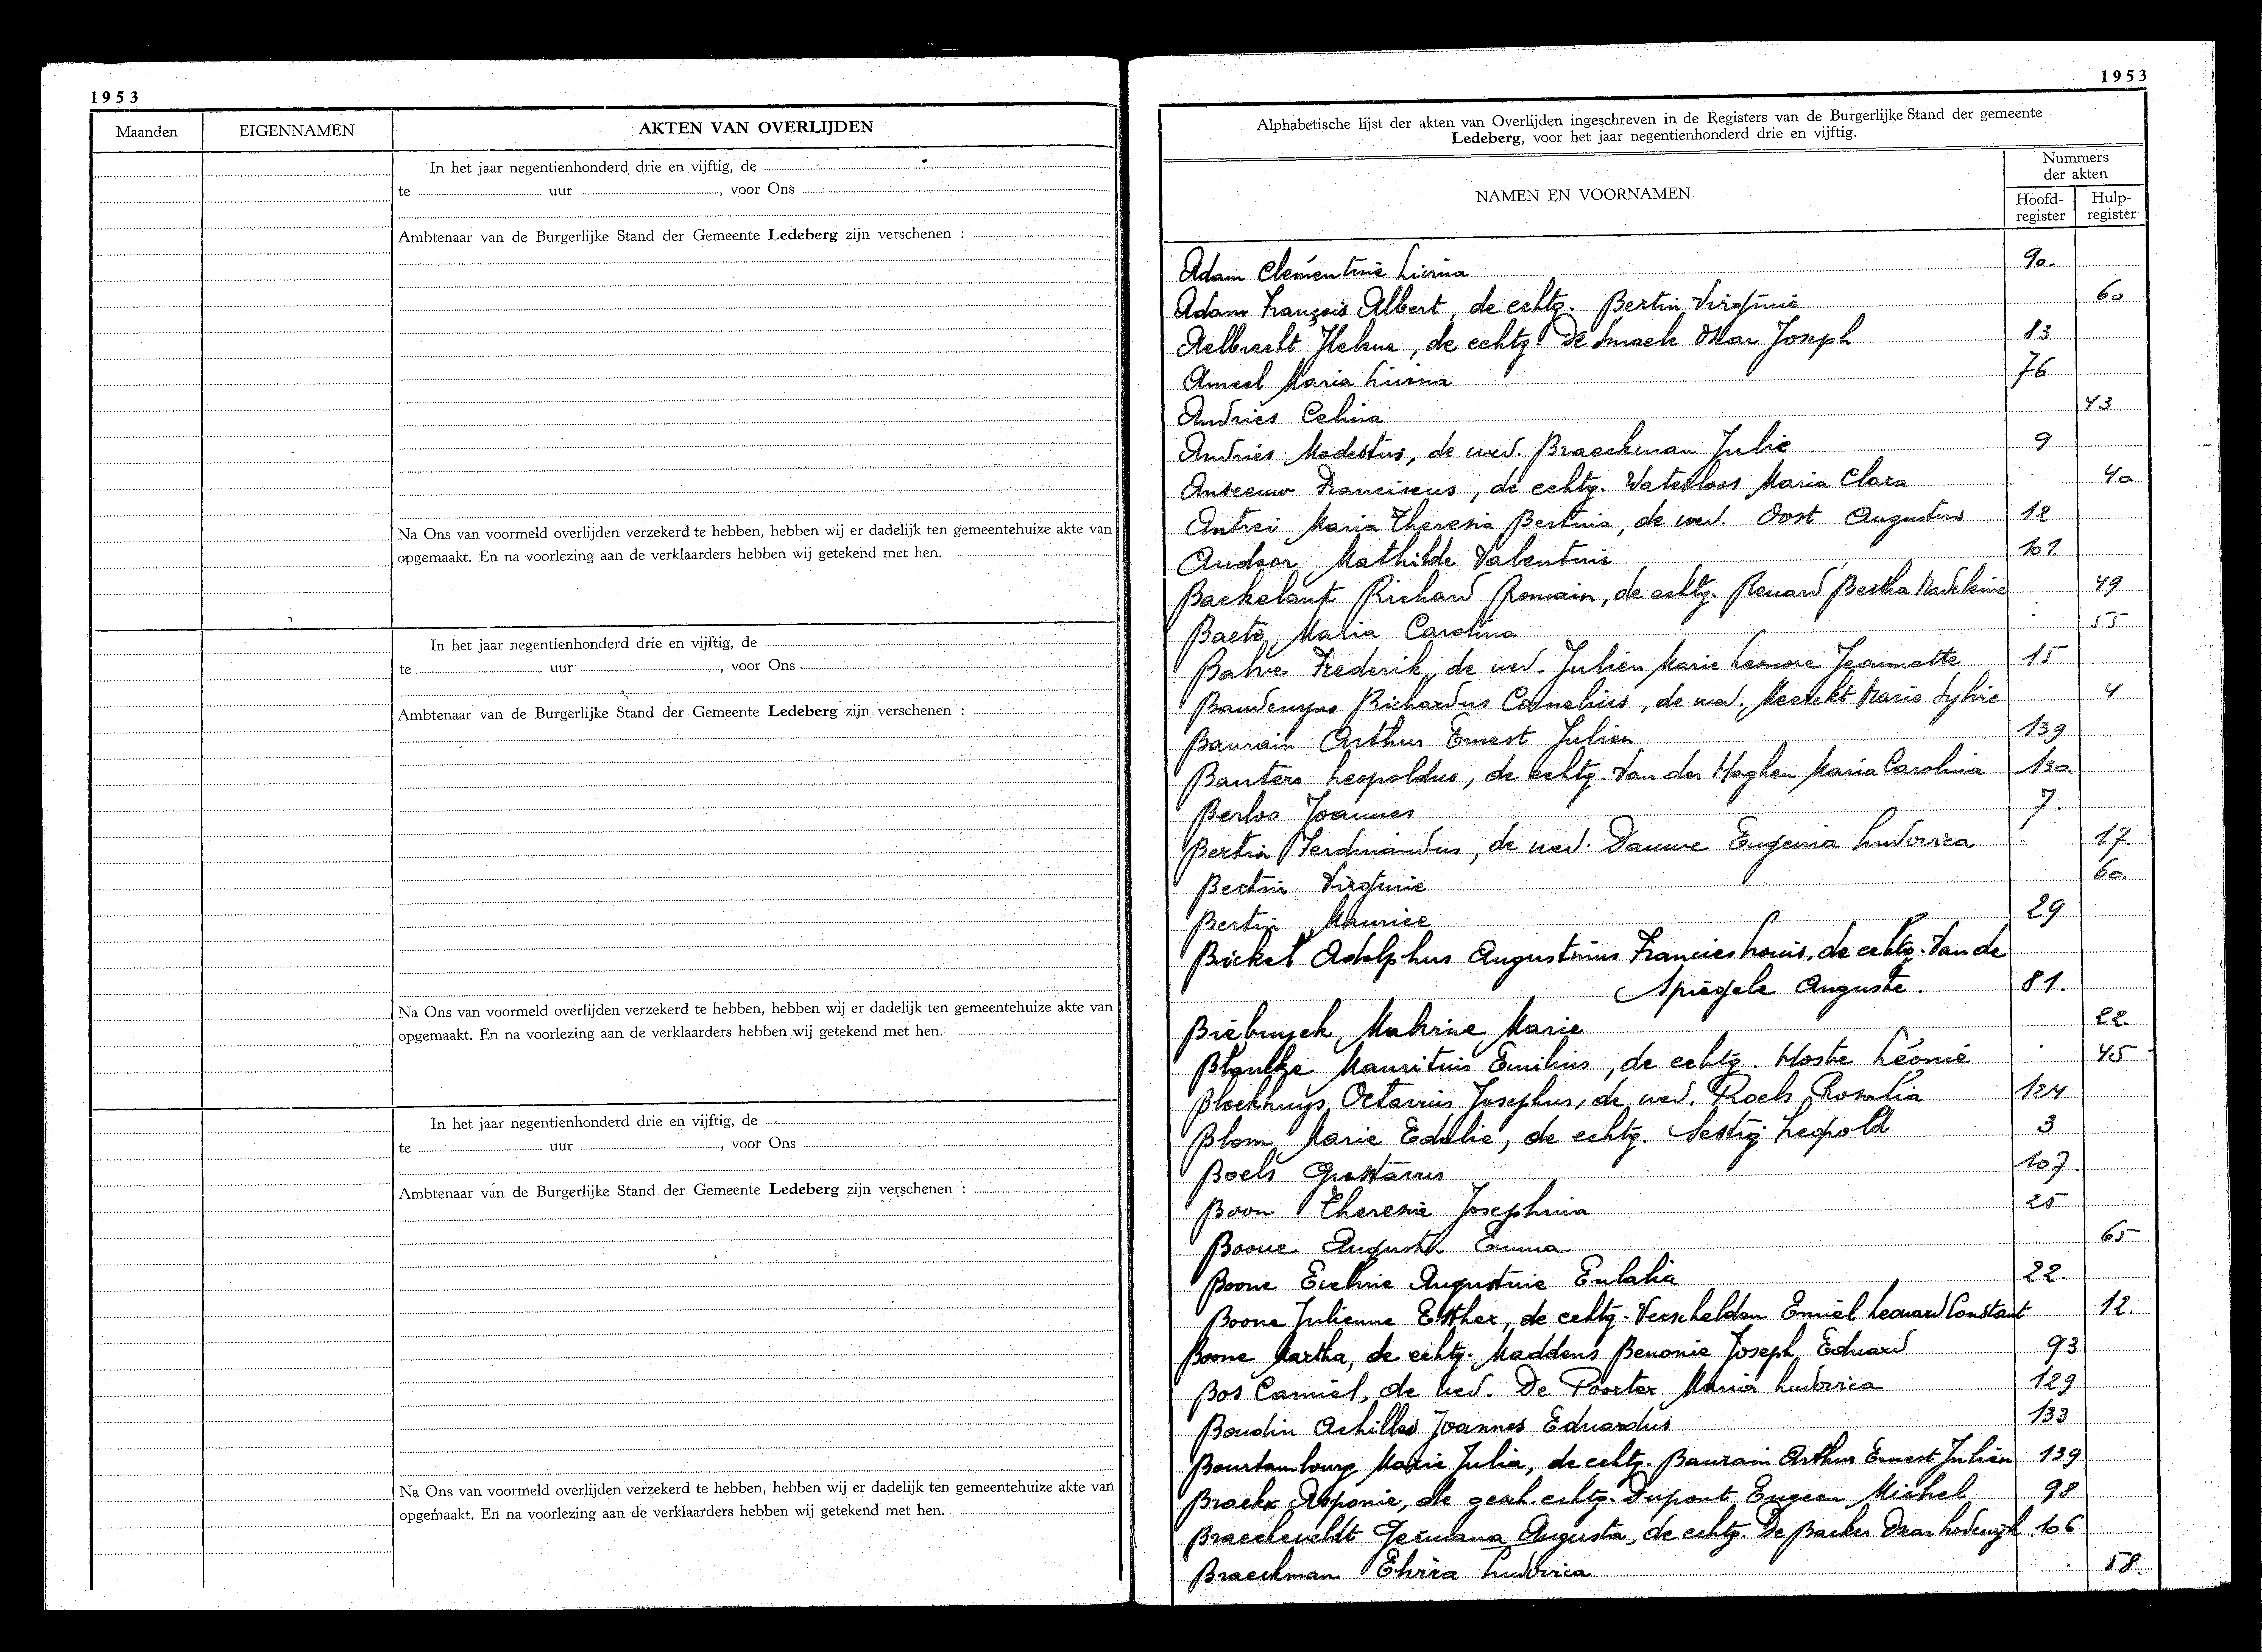 1953
Maanden EIGENNAMEN AKTEN VAN OVERLIJDEN
In het jaar negentienhonderd drie en vijftig, de
te uur , voor Ons
Ambtenaar van de Burgerlijke Stand der Gemeente Ledeberg zijn verschenen :
Na Ons van voormeld overlijden verzekerd te hebben, hebben wij er dadelijk ten gemeentehuize akte van
opgemaakt. En na voorlezing aan de verklaarders hebben wij getekend met hen.
In het jaar negentienhonderd drie en vijftig, de
te uur , voor Ons
Ambtenaar van de Burgerlijke Stand der Gemeente Ledeberg zijn verschenen :
Na Ons van voormeld overlijden verzekerd te hebben, hebben wij er dadelijk ten gemeentehuize akte van
opgemaakt. En na voorlezing aan de verklaarders hebben wij getekend met hen.
In het jaar negentienhonderd drie en vijftig, de
te uur , voor Ons
Ambtenaar van de Burgerlijke Stand der Gemeente Ledeberg zijn verschenen :
Na Ons van voormeld overlijden verzekerd te hebben, hebben wij er dadelijk ten gemeentehuize akte van
opgemaakt. En na voorlezing aan de verklaarders hebben wij getekend met hen.
1953
Alphabetische lijst der akten van Overlijden ingeschreven in de Registers van de Burgerlijke Stand der gemeente
Ledeberg, voor het jaar negentienhonderd drie en vijftig.
NAMEN EN VOORNAMEN
Nummers
der akten
Hoofd-
register
Hulp-
register
Adam Clementine Livina 90.
Adam François Albert, de echtg. Bertin Virginie 60
Aelbrecht Helene, de echtg. De Smaele Oskar Joseph 83
Ameel Maria Livina 76
Andries Celina 43
Andries Modestus, de wed. Braeckman Julie 9
Anseeuw Franciscus, de echtg. Waterloos Maria Clara 40
Antrei Maria Theresia Bertina, de wed. Oost Augustus 12
Audoor Mathilde Valentine 101.
Baekelant Richard Romain, de echtg. Renard Bertha Madeleine 49
Baets Maria Carolina 55
Frederik, de wed. Julien Marie Leonore Jeannette 15
Baudewyns Richardus Cornelius, de wed. Marie Sylvie 4
Baurain Arthur Ernest Julien 139
Bauters Leopoldus, de echtg. Van der Haghen Maria Carolina 130
Berloo Joannes 7.
Bertin Ferdinandus, de wed. Dauwe Eugenia Ludovica 17
Bertin Virginie 60.
Bertin Maurice 29
Bickel Adolphus Augustinus Francies Louis, de echtg. Van de
Spiegele Auguste. 81.
Biebuyck Malvine Marie 22.
Mauritius Emilius, de echtg. Hoste Léonie 45
Blockhuys Octavius Josephus, de wed. Roels Rosalia 124
Blom Marie Edulie, de echtg. Sestig Leopold 3
Boels Gustavus 107.
Boon Theresia Josephina 25
Boone Augusta Emma 65
Boone Eveline Augustine Eulalia 22.
Boone Julienne Esther, de echtg. Verschelden Emiel Leonard Constant 12.
Boone Martha, de echtg. Maddens Benonie Joseph Eduard 93
Bos Camiel, de wed. De Poorter Maria Ludovica 129
Boudin Achilles Joannes Eduardus 133
Bourtambourg Marie Julia, de echtg. Baurain Arthur Ernest Julien 139
Braekx Alponie, de gesch. echtg. Dupont Eugeen Michel 98
Braeckeveldt Germana Augusta, de echtg. De Backer Lodewijk 106
Braeckman Elvira Ludovica 58.